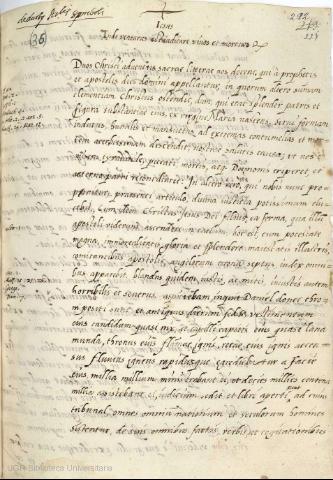 de duobus Xsti
symboli
292
(36)
Iesus
Inde venturus est iudicare vivos et mortuos
Duos Christi adventus sacrae litterae nos docent, qui à prophetis
et apostolis dies domini appellantur, in quorum altero summam
clementiam Christus ostendit, dum qui erat splendor patris et
figura substantiae eius, ex virgine Maria nascens, servi formam
indutus, humilis et mansuetus, ad extremas contumelias et mor
tem acerbissimam descendit, nostrae salutis causa, ut nos è
tyrannide, peccati, mortis, atq; Daemonis eriperet, et
aeterno patri reconciliaret. In altero vero, qui nobis nunc pro
ponitur, praesenti articulo, divina iustitia potissimum elu
cebit, cum idem Christus Iesus Dei filius, ea forma, qua illum
apostoli viderunt ascendentem in caelum, hoc est, cum potestate
magna, immortalitatis gloria et splendore maiestatis illustris,
comitantibus apostolis, angelorum coronâ septus, index omni
bus apparebit, blandus quidem iustis, ac mitis, iniustis autem
horribilis et severus. aspiciebam inquit Daniel donec thro
ni positi sunt, et antiquus dierum sedit, vestimentum
eius candidum quasi nix, et capilli capitis eius quasi lana
munda, thronus eius flammae ignis, rotae eius ignis accen
sus, fluvius igneus rapidusque egrediebatur a facie
eius, millia millium ministrabant ei, et decies millies centena
millia assistebant ei, iudicium sedit et libri aperti
tribunal, omnes omnium nationum et seculorum homines
sistentur, de suis omnibus factis, verbis, et cogitationibus
UGR Biblioteca Universitaria